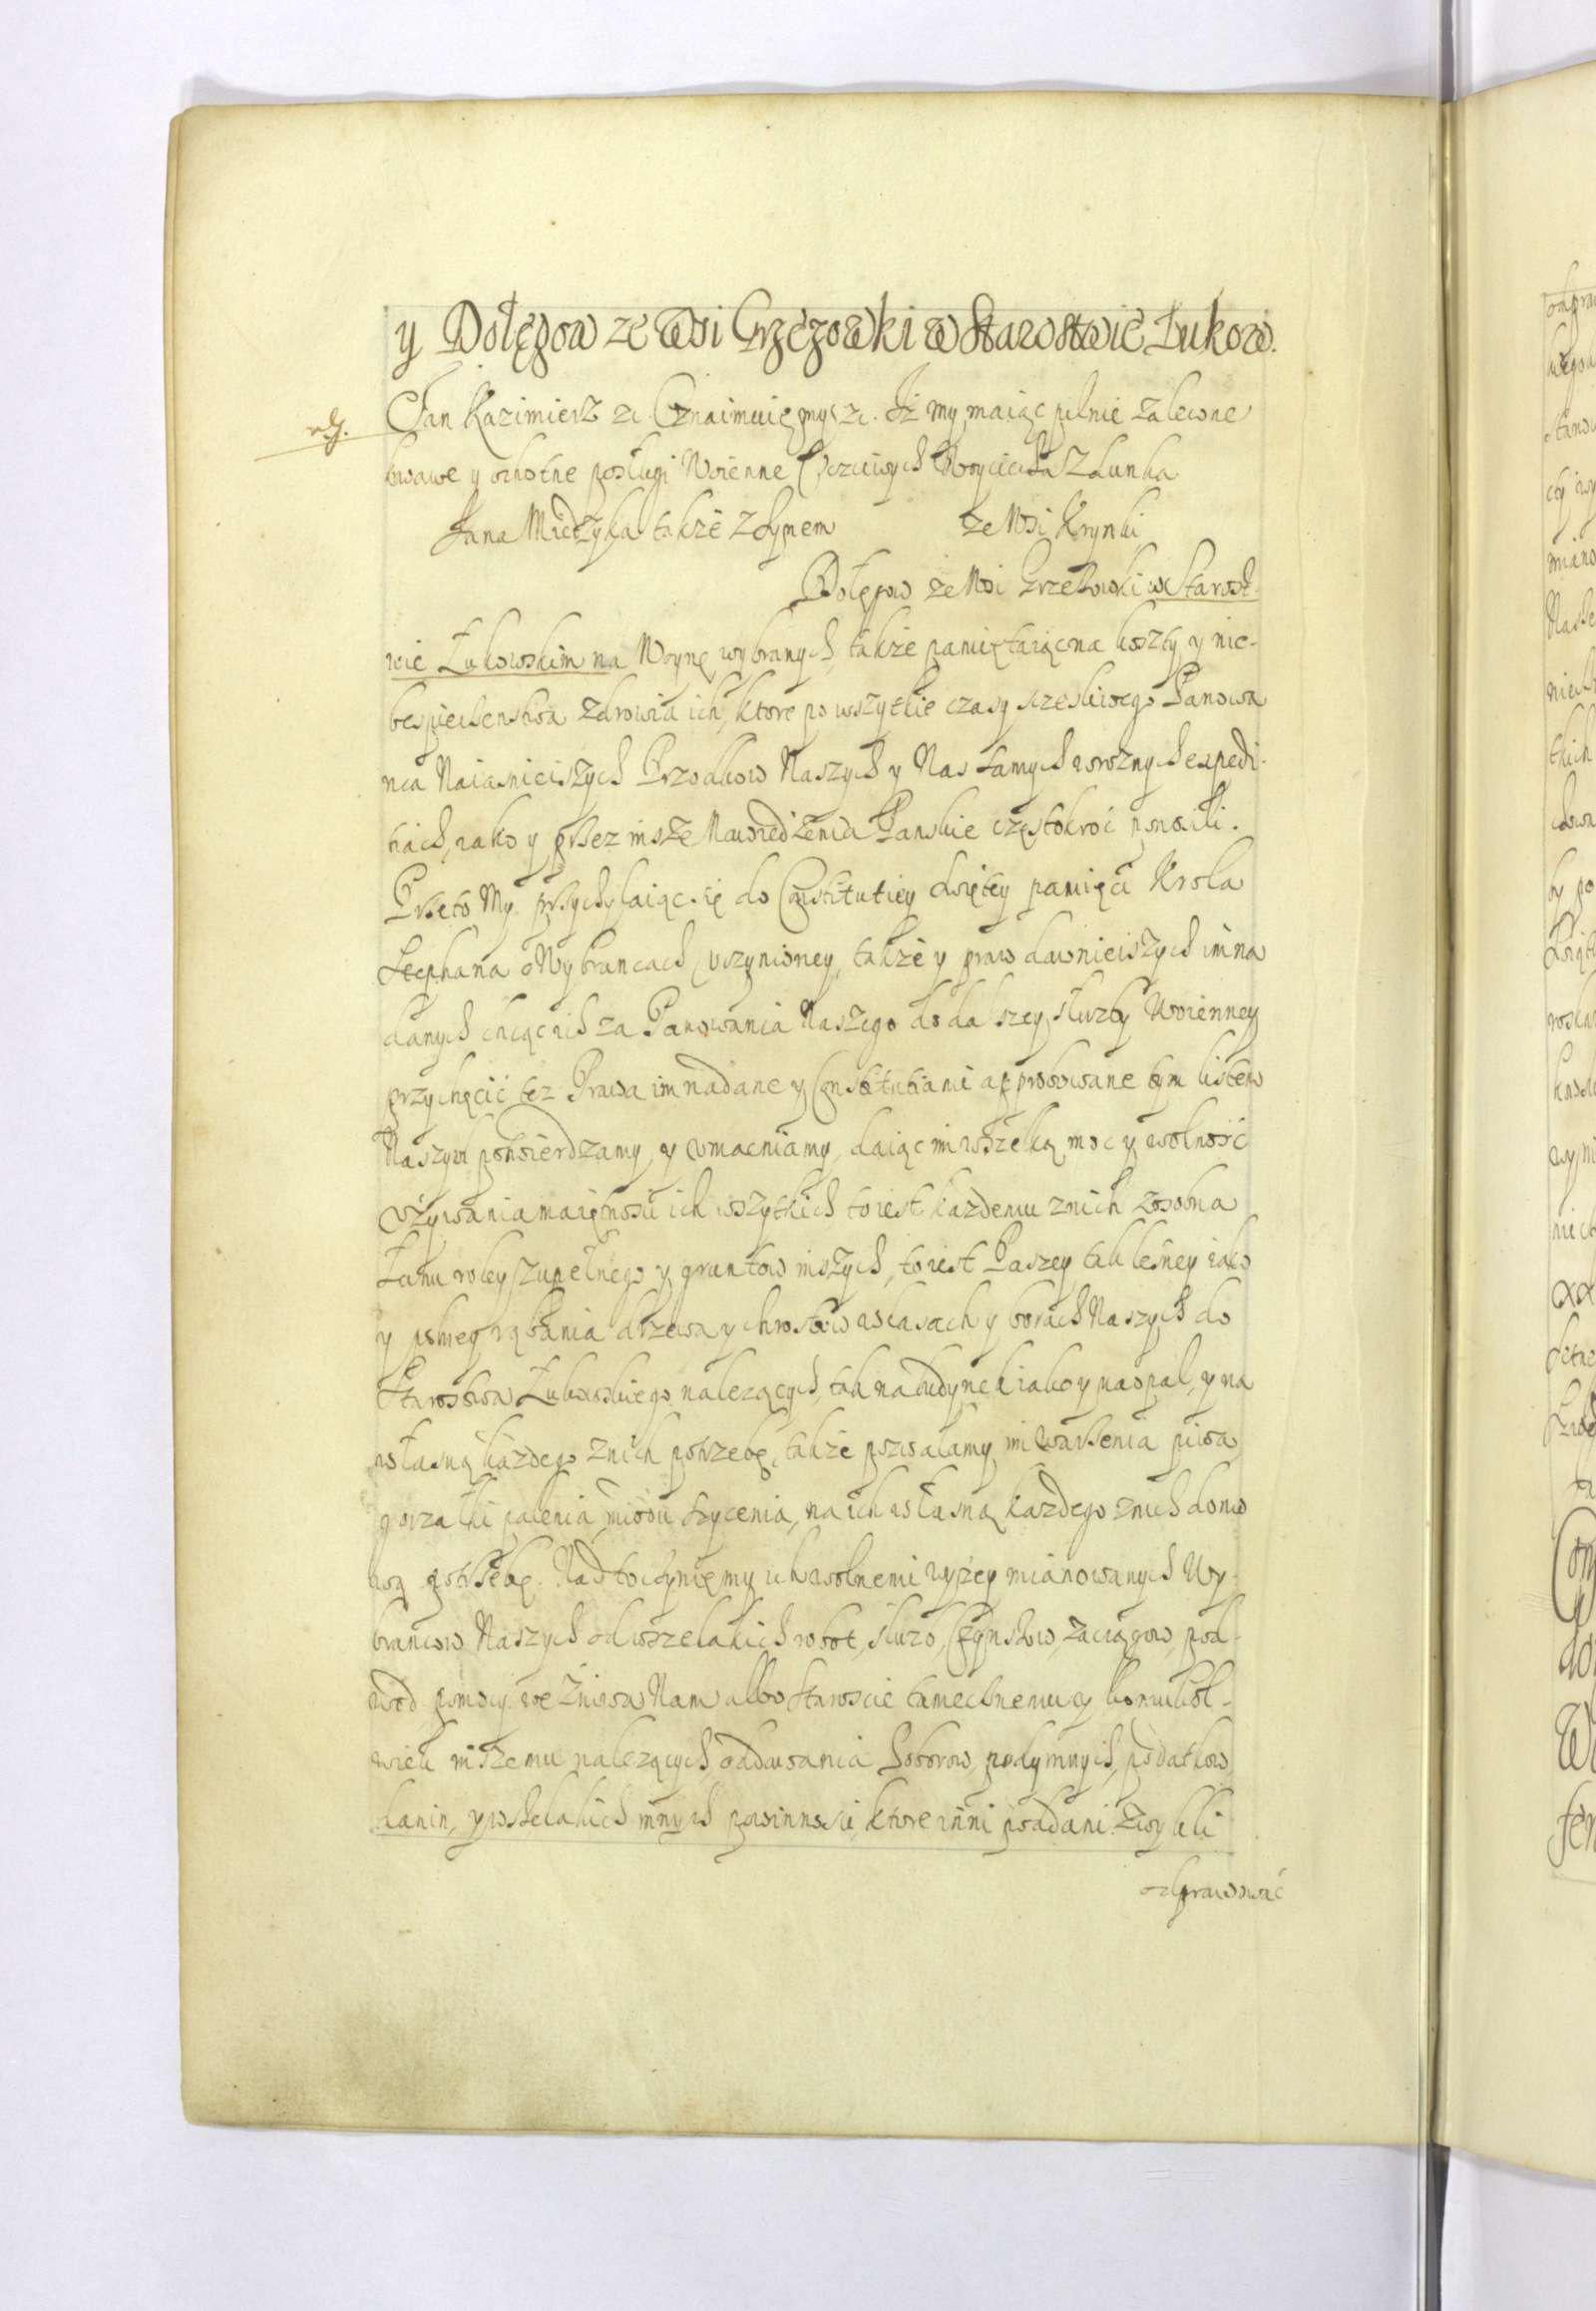 y Dołęgow ze Wsi Grzęzowki w Starostwie Łukow.
Jan Kazimierz zc. Oznaimuięmy zc. Iż My maiąc pilnie zalecone
krwawe y ochotne posługi Woienne Uczciwych Woyciecha Zdunka
Jana Miedzyka także z Synem ze Wsi Krynki
Dołęgow ze Wsi Grzezowki w Starost-
wie Łukowskim na Woynę wybranych, także pamiętaiąc na koszty y nie-
bespieczenstwa zdrowia ich, ktore po wszytkie czasy sczesliwego Panowa
nia Naiasnieiszych Przodkow Naszych y Nas samych w roznych expedi-
tiach, iako y przez insze Nawiedzenia Panskie częstokroć ponosili.
Przeto My przychylaiąc się do Constitutiey swiętey pamięci Krola
Stephana o Wybrancach uczynioney, także y praw dawnieiszych im na
danych chcąc ich za Panowania Naszego do dalszey służby Woienney
przychęcić też Prawa im nadane y Constitutiami approbowane tym listem
Naszym potwierdzamy y umacniamy, daiąc im wszelką moc y wolność
używania maiętnosci ich wszytkich to iest każdemu z nich zosobna
Łanu roley zupełnego y gruntow inszych, to iest Paszey tak lesney iako
y polney rąbania drzewa y chrostow w lasach y borach Naszych do
Starostwa Łukowskiego nalezących, tak na budynek iako y na opał, y na
własną każdego z nich potrzebę, także pozwalamy im warzenia piwa
gorzałki palenia, miodu sycenia, na ich własną każdego z nich domo
wą potrzebę. Nad to czynięmy ich wolnemi wyżey mianowanych Wy-
brancow Naszych od wszelakich robot, służb, Czynszow, zaciągow, pod-
wod pomocy we żniwa Nam albo Staroscie tamecznemu y komukol-
wiek inszemu nalezących, oddawania Poborow, podymnych, podatkow
danin, y wszelakich innych powinnosci, ktore inni poddani zwykli
odprawować